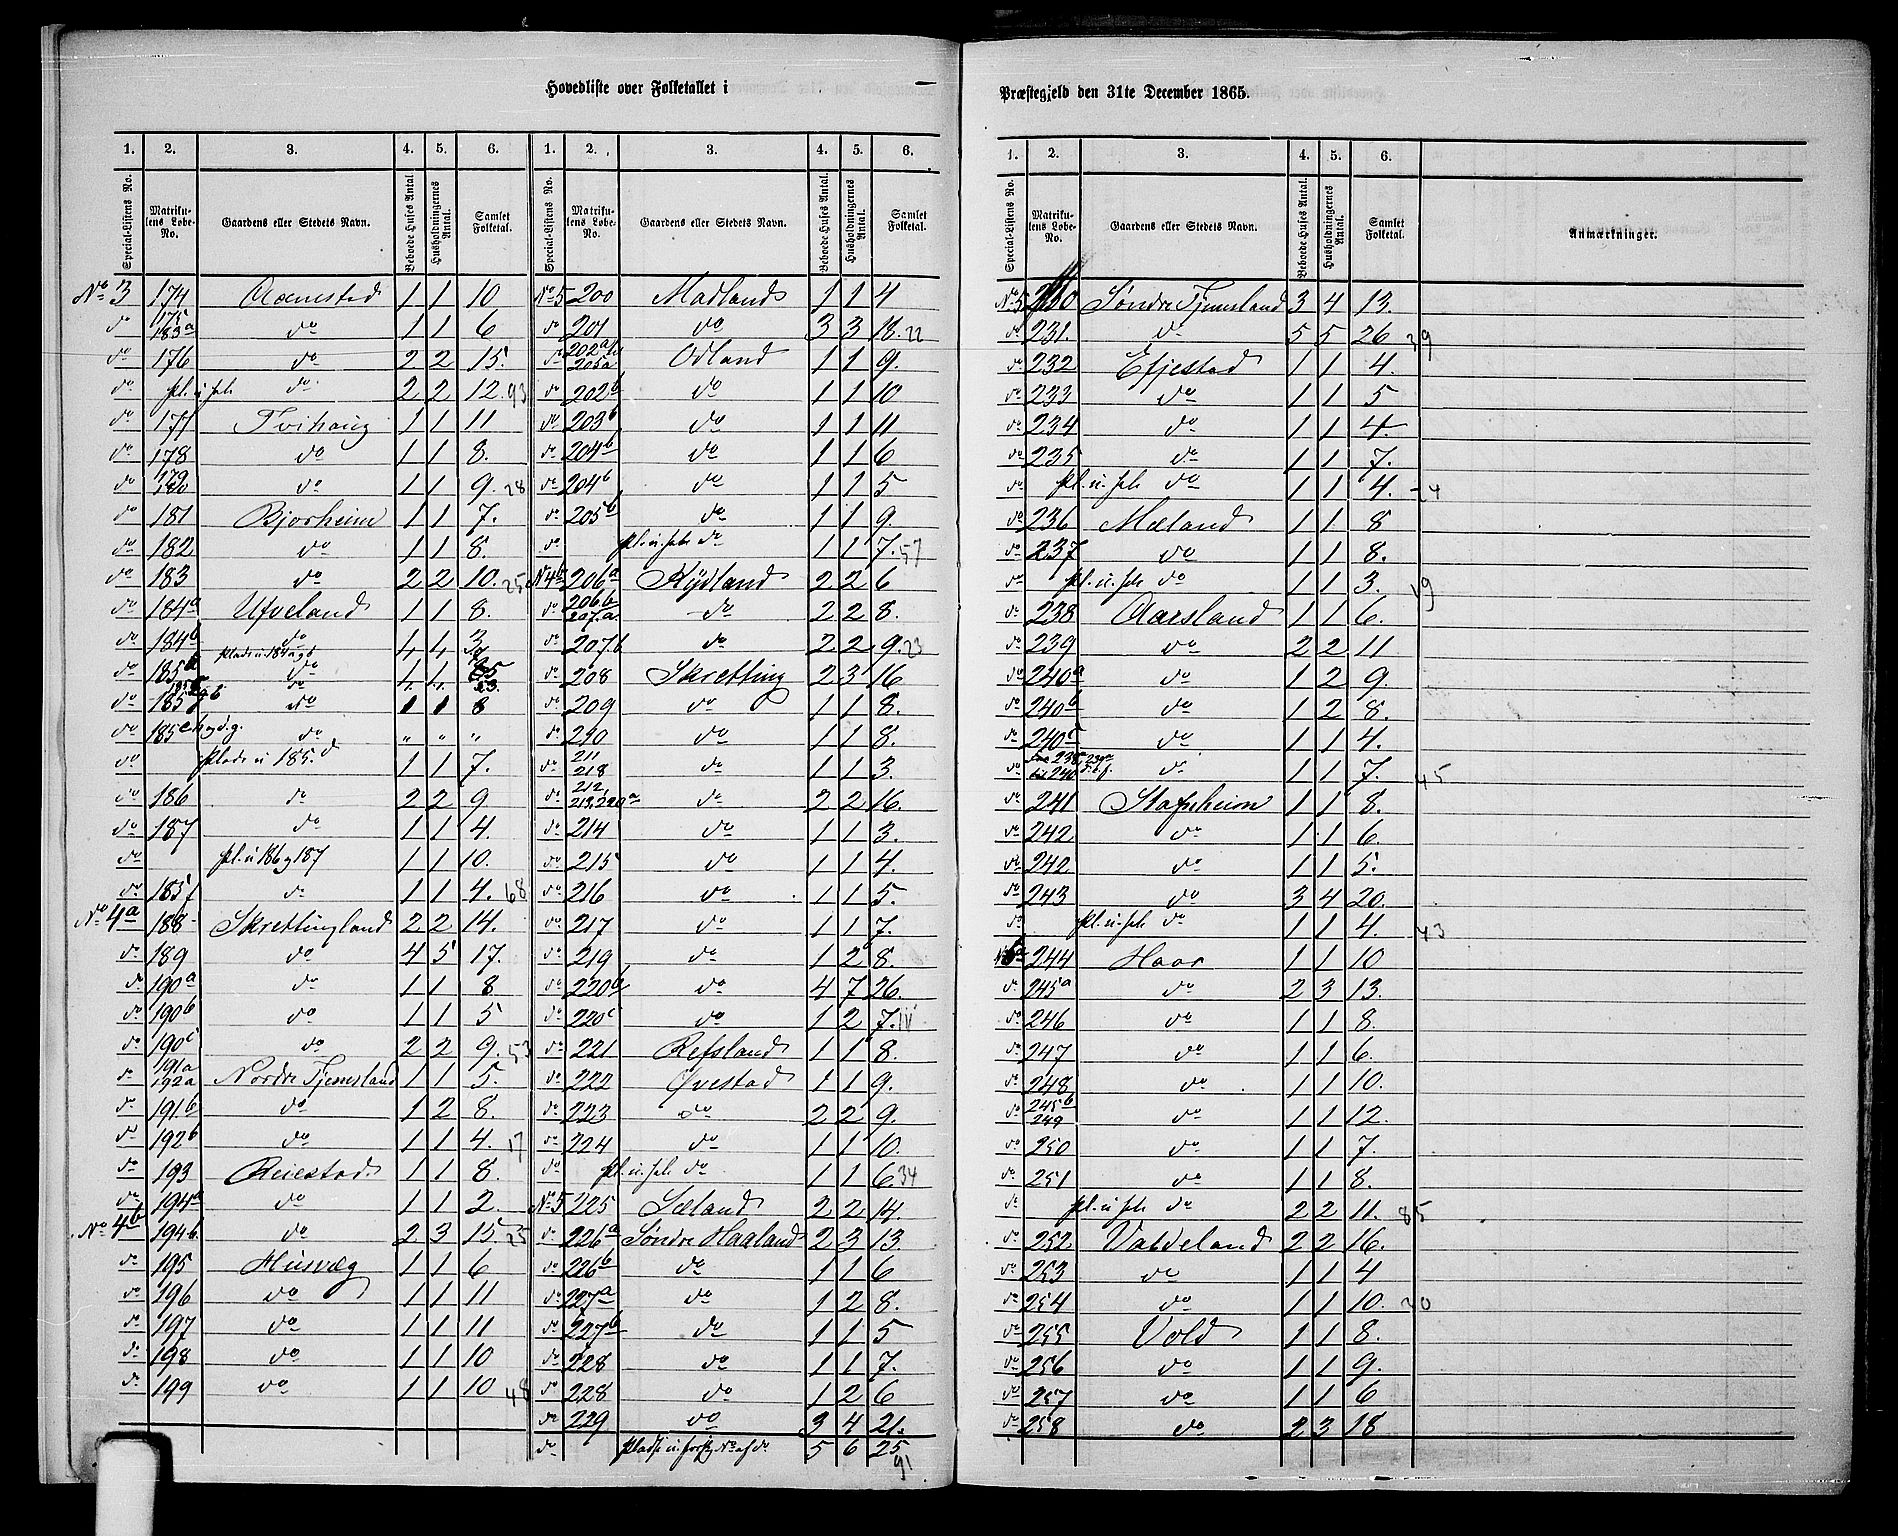 Hovedliste over Folketallet i —
Præstegjeld den 31te December 1865.
1. 2. 3. 4. 5. 6.
Special-Listens No. Matrikulens Løbe-No. Gaardens eller Stedets Navn. Beboede Huses Antal. Husholdningernes Antal. Samlet Folketal.
No 3 174 Aanestad 1 1 10
do 175 183a do 1 1 6
do 176 do 2 2 15.
do pl. u. sele do 2 2 12. 93
do 177 Tvihaug 1 1 11
do 178 do 1 1 8.
do 179 180 do 1 1 9. 28
do 181 Bjorheim 1 1 7.
do 182 do 1 1 8.
do 183 do 2 2 10. 25
do 184a Ufveland 1 1 8.
do 184b do
Plads u 184 a g b 4 4
do 185a do 4 4
do 185 do 1 1 8
do 185c do " " "
do Plads u 185.d 1 1 7.
do 186 do 2 2 9
do 187 do 1 1 4.
do pl. u 186 g 187 1 1 10.
do 185f do 1 1 4. 68
No 4a 188 Skrettingland 2 2 14.
do 189 do 4 5 17.
do 190a do 1 1 8
do 190b do 1 1 5
do 190c do 2 2 9. 53
do 191a 192a Nordre Tjemsland 1 1 5.
do 191b do 1 2 8.
do 192b do 1 1 4. 17
do 193 Reiestad 1 1 8.
do 194a do 1 1 2.
No 4b 194b do 2 3 15. 25
do 195 Husvæg 1 1 6
do 196 do 1 1 11
do 197 do 1 1 11
do 198 do 1 1 10
do 199 do 1 1 10 48
1. 2. 3. 4. 5. 6.
Special-Listens No. Matrikulens Løbe-No. Gaardens eller Stedets Navn. Beboede Huses Antal. Husholdningernes Antal. Samlet Folketal.
No 5 200 Madland 1 1 4
do 201 do 3 3 18. 22
do 202a 205a Odland 1 1 9.
do 202b do 1 1 10
do 203b do 1 1 11
do 204b do 1 1 6
do 204b do 1 1 5
do 205b do 1 1 9.
do pl. u. sele do 1 1 7. 57
No 4b 206a Rydland 2 2 6
do 206b 207.a do 2 2 8.
do 207b do 2 2 9. 23
do 208 Skretting 2 3 16
do 209 do 1 1 8.
do 210 do 1 1 8.
do 211 218 do 1 1 3.
do 212, 213, 220a do 2 2 16.
do 214 do 1 1 3.
do 215 do 1 1 4.
do 216 do 1 1 5.
do 217 do 1 1 7.
do 219 do 1 2 8.
do 220b do 4 7 26.
do 220c do 1 2 7.
do 221 Refsland 1 1 8.
do 222 Øvestad 1 1 9.
do 223 do 2 2 9.
do 224 do 1 1 10.
do pl. u. sele do 1 1 6. 34
No 5 225 Sæland 2 2 14.
do 226a Søndre Haaland 2 3 13.
do 226b do 1 1 6
do 227a do 1 2 8.
do 227b do 1 1 5
do 228 do 1 1 7.
do 228 do 1 2 6
do 229 do 3 4 21.
do 5 6 25
91
1. 2. 3. 4. 5. 6.
Special-Listens No. Matrikulens Løbe-No. Gaardens eller Stedets Navn. Beboede Huses Antal. Husholdningernes Antal. Samlet Folketal. Anmærkninger.
No 5 230 Søndre Tjemsland 3 4 13.
do 231. do 5 5 26 39
do 232 Efjestad 1 1 4.
do 233 do 1 1 5
do 234 do 1 1 4.
do 235 do 1 1 7.
do pl. u. sele do 1 1 4. 24
do 236 Mæland 1 1 8
do 237 do 1 1 8.
do pl. u. sele do 1 1 3. 19
do 238 Aarsland 1 1 6.
do 239 do 2 2 11
do 240a do 1 2 9.
do 240b do 1 2 8.
do 240c do 1 1 4.
do do 1 1 7. 45
do 241 Stafnheim 1 1 8.
do 242 do 1 1 6.
do 242 do 1 1 5.
do 243 do 3 4 20.
do pl. u. sele do 1 1 4. 43
244 Haar 1 1 10
do 245a do 2 3 13.
do 246 do 1 1 8.
do 247 do 1 1 6.
do 248 do 1 1 10.
do 245b 249 do 1 1 12.
do 250 do 1 1 7.
do 251 do 1 1 8.
do pl. u. sele do 2 2 11. 85
do 252 Valdeland 2 2 16.
do 253 do 1 1 4
do 254 do 1 1 10. 30
do 255 Vold 1 1 8.
do 256 do 1 1 9.
do 257 do 1 1 6
do 258 do 2 3 18